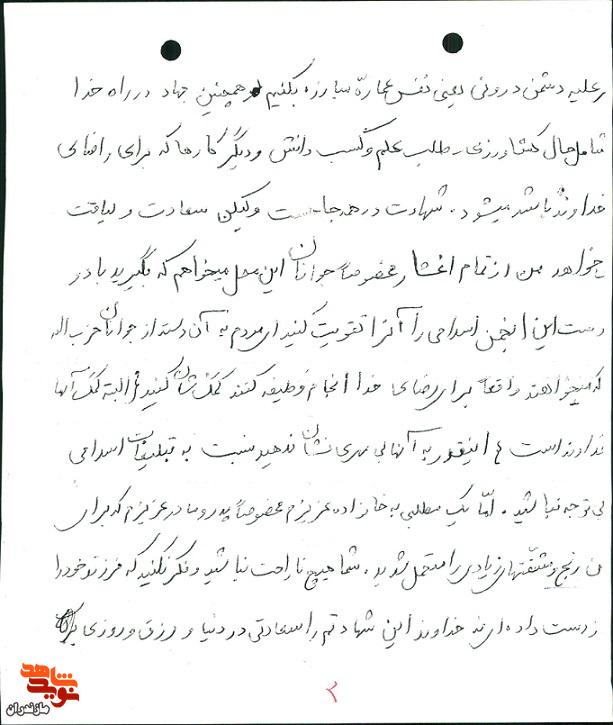 بر علیه دشمن درونی یعنی نفس عماره مبارزه بکنیم و همچنین جهاد در راه خدا
شامل حال کشاورزی، طلب علم و کسب دانش و دیگر کارها که برای رضای
خداوند باشد میشود. شهادت در همه جا هست ولیکن سعادت و لیاقت
میخواهد من از تمام اقشار مخصوصاً جوانان این محل میخواهم که بگیرید با در
دست این انجمن اسلامی را آنرا تقویت کنید ای مردم به آن دسته از جوانان حزب اله
که میخواهند واقعاً برای رضای خدا انجام وظیفه کنند کمکشان کنید البته کمک آنها
خداوند است اینقدر به آنها بی مهری نشان ندهید نسبت به تبلیغات اسلامی
بی توجه نباشید. امّا یک مطلبی به خانواده عزیزم مخصوصاً پدر و مادر عزیزم که برای
من رنج و مشقّتهای زیادی را متحمل شدید. شما هیچ ناراحت نباشید و فکر نکنید که فرزند خود را
از دست داده ای نه خداوند این شهادتم را سعادتی در دنیا و رزق و روزی
۲
شاهد
نوید
مازندران